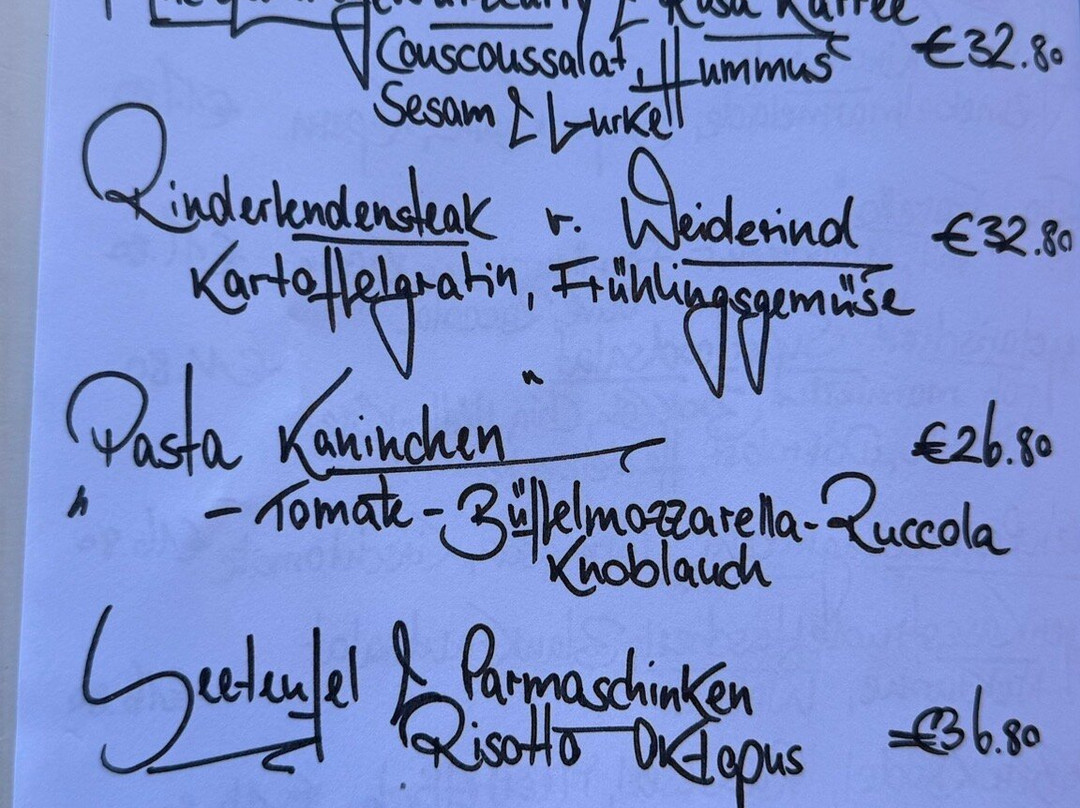 & Rosa Kaffee
Couscoussalat, Hummus €32.80
Sesam & Gurke
Rinderlendensteak v. Weiderind €32.80
Kartoffelgratin, Frühlingsgemüse
"
Pasta Kaninchen €26.80
" - Tomate - Büffelmozzarella - Ruccola
Knoblauch
Seeteufel & Parmaschinken
Risotto - Oktopus €36.80